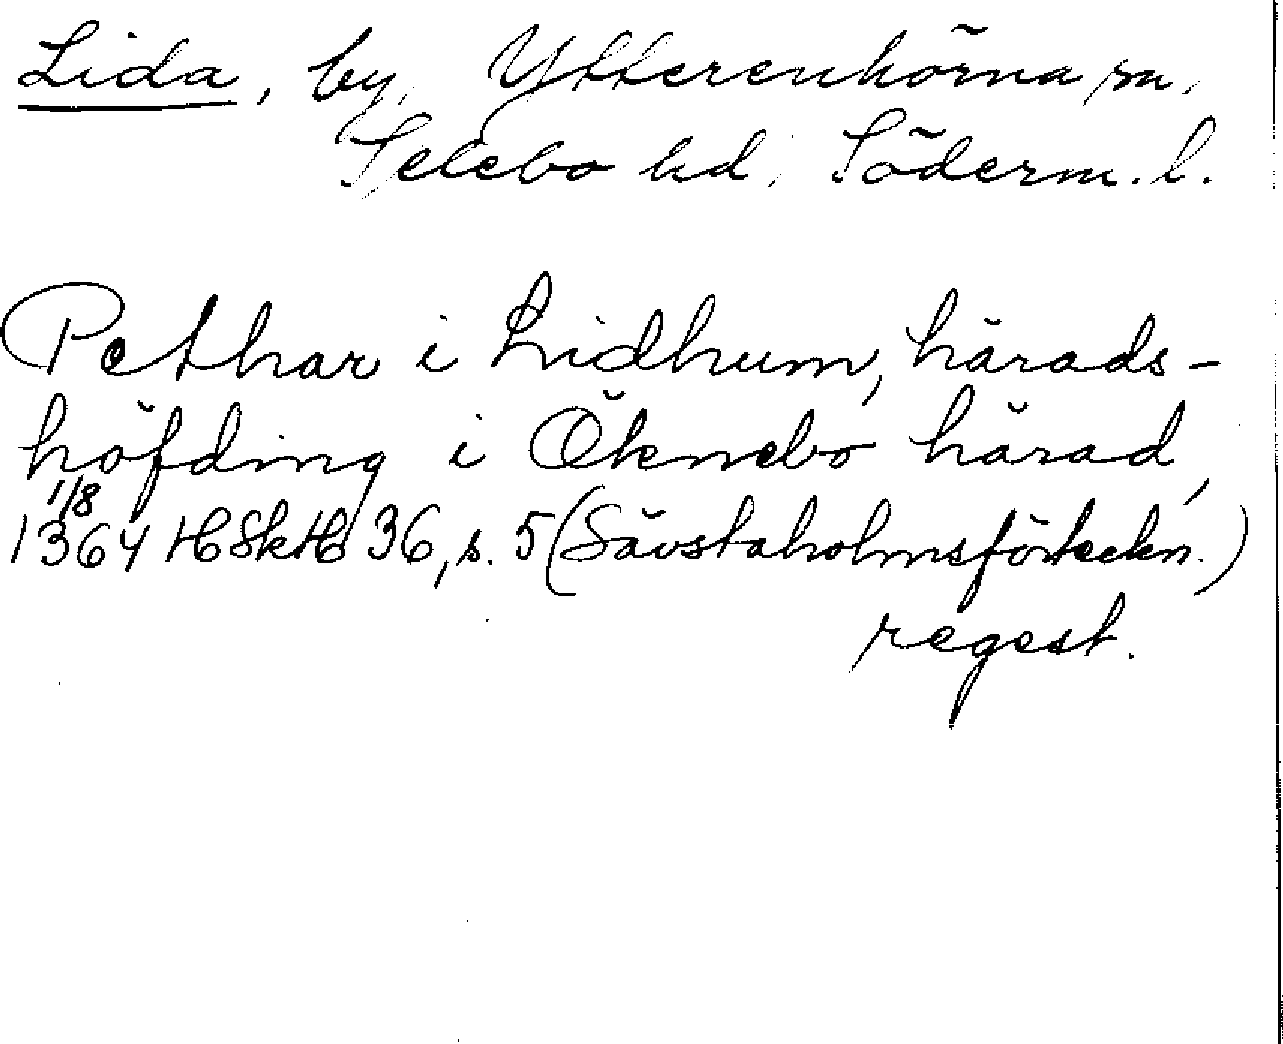 Lida, by, Ytterenhörna sn,
Selebo hd, Söderm. l.
Pethar i Lidhum, härads-
höfding i Öknebo härad,
1/8
1364 HSkH 36, s. 5 (Sävstaholmsförteckn.)
regest.